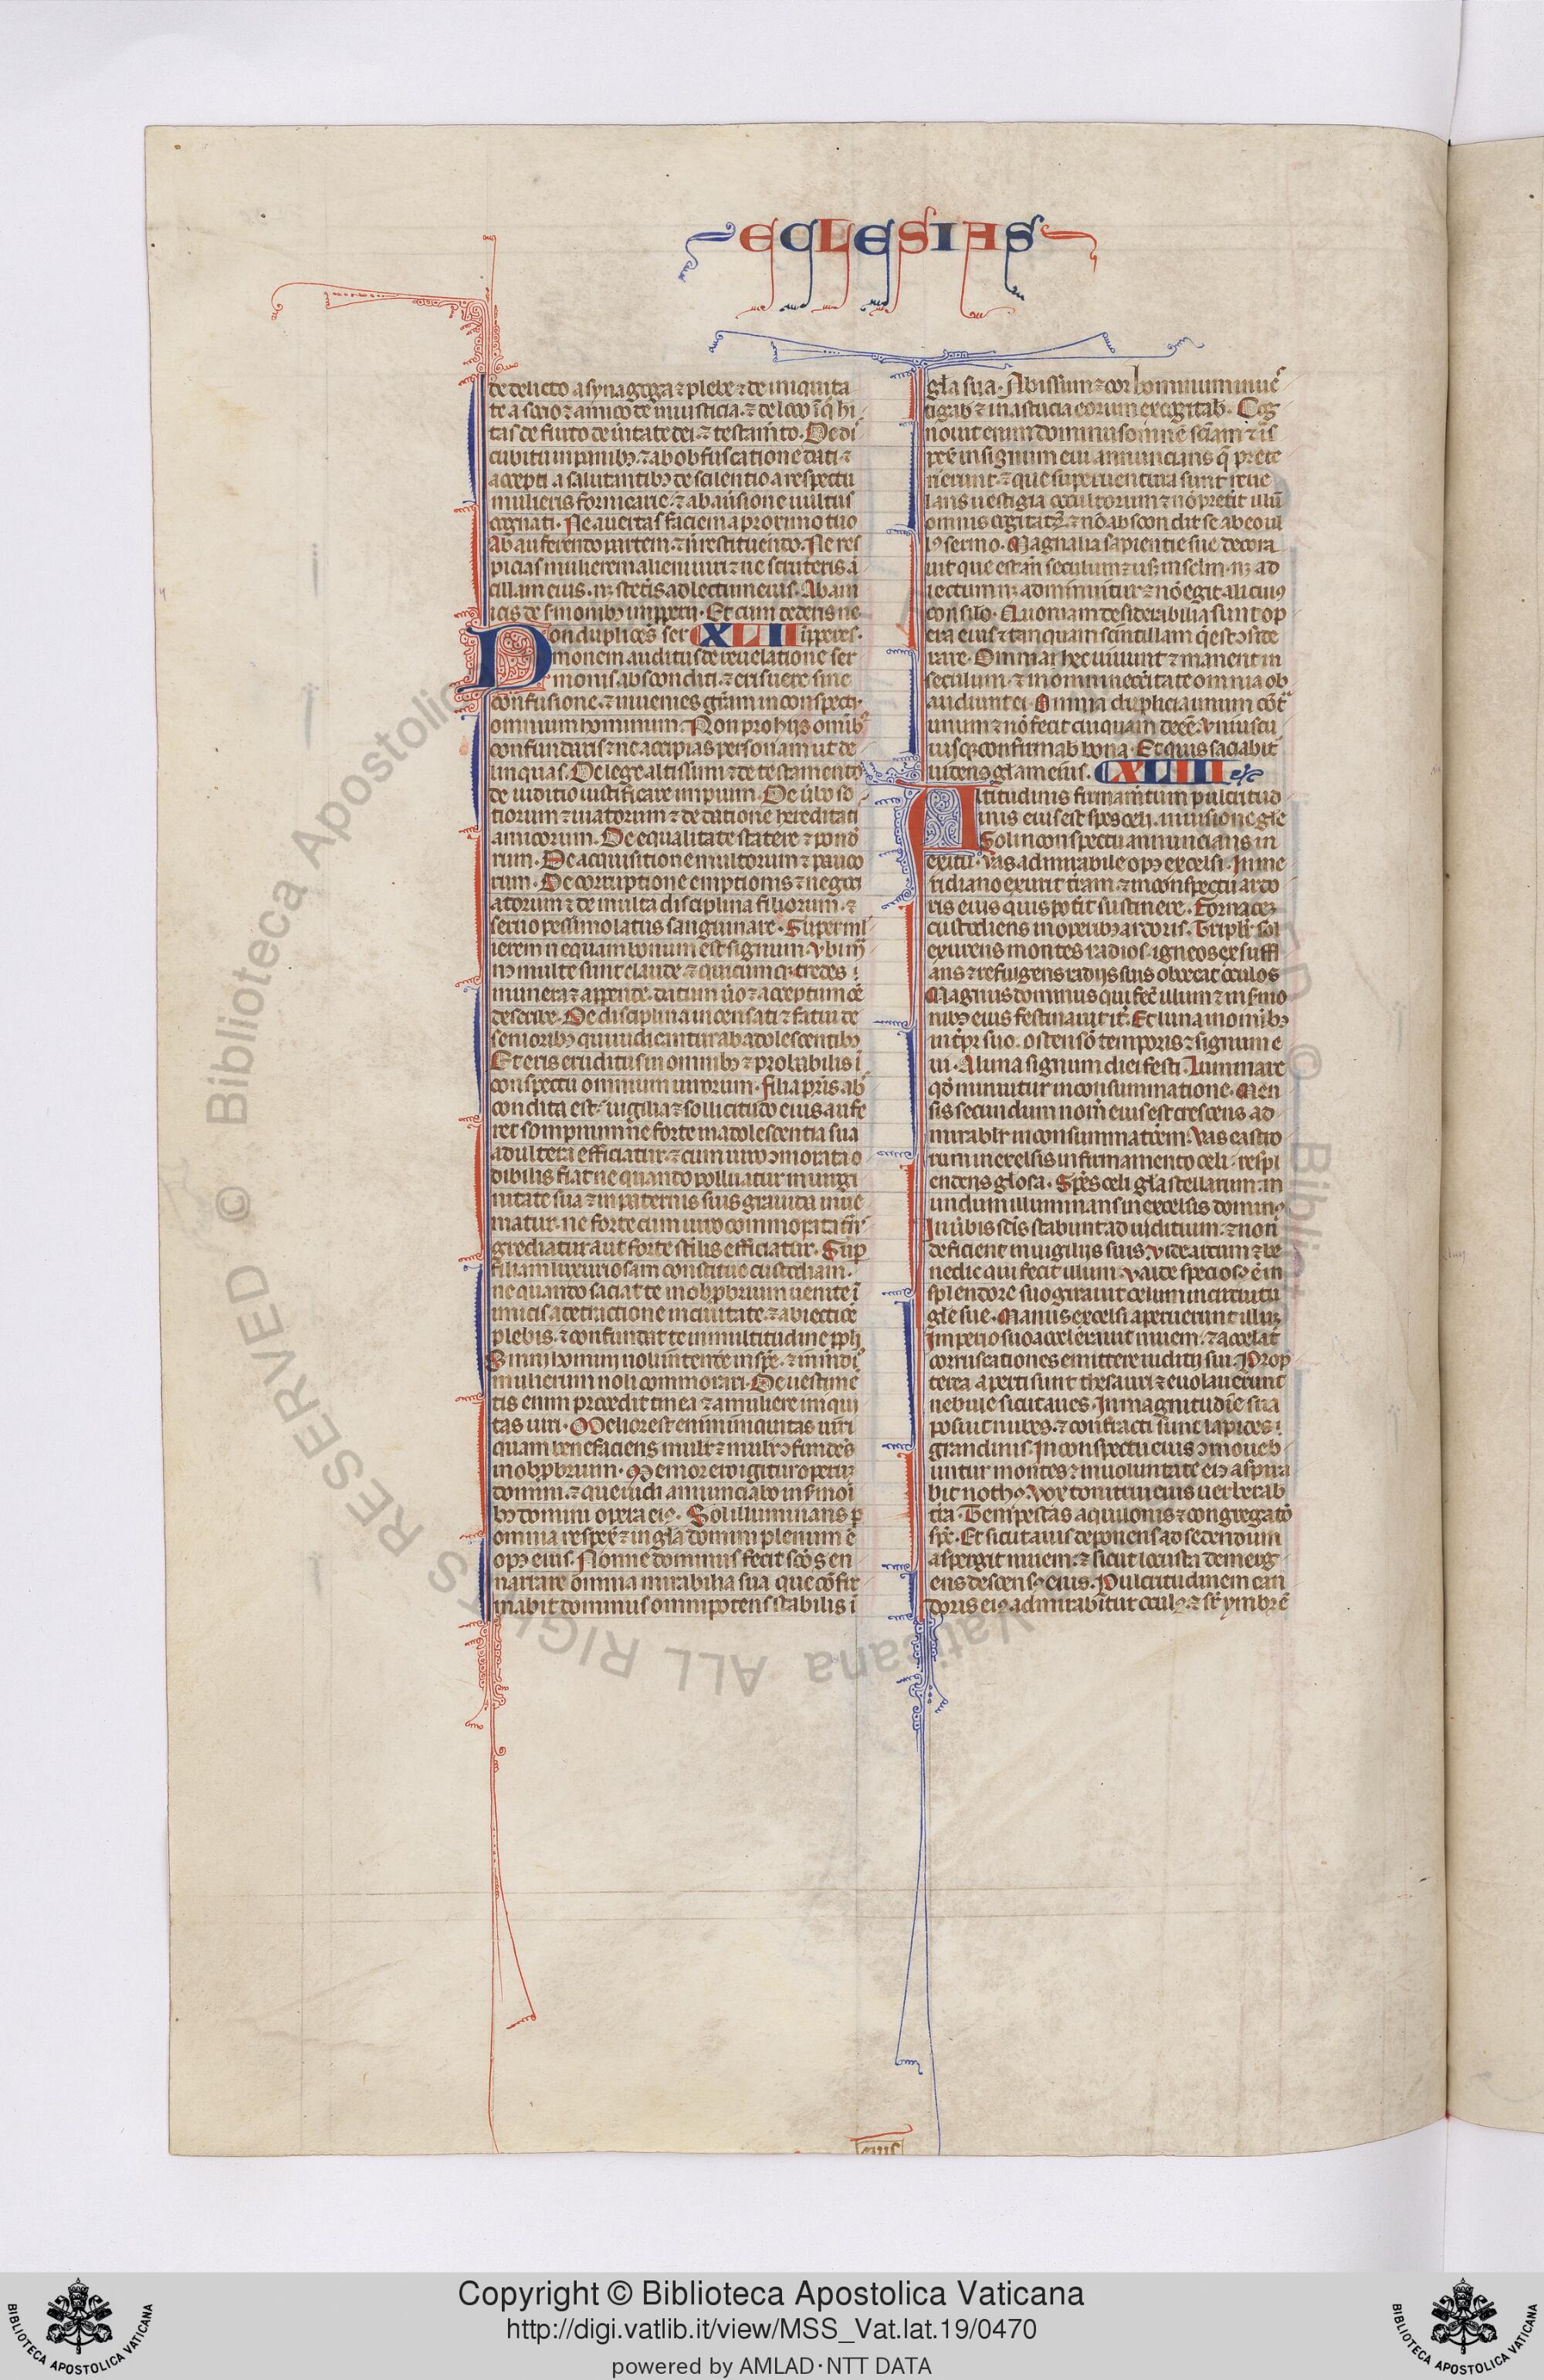 ECCLESIAS
de delicto a synagoga ⁊ plebe ⁊ de iniquita
te a socio ⁊ amico de iniusticia. ⁊ de loco ĩ q̃ hi
tas de furto de ũitate dei. ⁊ testam̃to. De di
cubitu in panibꝫ ⁊ ab obfuscatione dati ⁊
accepti a salutantibꝫ de scilentio a respectu
mulieris fornicarie. ⁊ ab aũsione uultus
cognati. Ne auertas faciem a proximo tuo
Ab auferendo partem. ⁊ ñ restituendo. Ne res
picias mulierem alieni uiri ⁊ ne scruteris ã
cillam eius. nꝫ steĩs ad lectum eius. Ab am
icis de s̃monibꝫ ĩproperii. Et cum dederis ne
Non duplices ser XLII ĩpperes.
monem auditus de reuelatione ser
monis absconditi. ⁊ eris uere sine
confusione. ⁊ inuenies gr̃am in conspectu
omnium hominum. Non pro hijs omĩbꝫ
confundaris ⁊ ne accipias personam ut de
linquas. De lege altissimi ⁊ de testamento
de iuditio iustificare impium. De ũbo so
tiorum ⁊ uiatorum ⁊ de datione hereditati
amicorum. De equalitate statere ⁊ pond̃
rum. De acquisitione multorum ⁊ pauco
rum. De corruptione emptionis ⁊ negoci
atorum ⁊ de multa disciplina filiorum. ⁊
seruo pessimo latus sanguinare. Super ml
ierem nequam bonum est signum. Vbi m̃
nꝫ multe sunt claude. ⁊ quicumqꝫ trades ĩ
munera ⁊ appende. datum ũo ⁊ acceptum õe
describe. De disciplina incensati ⁊ fatui de
senioribꝫ qui iudicantur ab adolescentibꝫ
Et eris eruditus in omnibꝫ ⁊ probabilis ĩ
conspectu omnium uirorum. filia pr̃is ab
condita est. uigilia ⁊ sollicitudo eius aufe
ret sompnum ne forte in adolescentia sua
adultera efficiatur. ⁊ cum uiro ꝯmorata o
dibilis fiat ne quando polluatur in uirgi
nitate sua ⁊ in paternis suis grauida inue
niatur. ne forte cum uiro commorata trñs
grediatur aut forte st̃ilis efficiatur. Sup̃
filiam luxuriosam constitue custodiam.
ne quando faciat te in obp̃brium uenire ĩ
imicis a detractione in ciuitate. ⁊ abiectiõe
plebis. ⁊ confundat te in multitudine ppl̃i
Omni homini noli intendere in spẽ. ⁊ in m̃dio
mulierum noli commorari. De uestimẽ
tis enim procedit tinea ⁊ a muliere iniqui
tas uiri. Melior est enim iniquitas uiri
quam benefaciens mulr̃ ⁊ mulr̃ ꝯfundẽs
in obp̃brium. Memor ero igitur operum
domini. ⁊ que uidi annunciabo in s̃moĩ
bꝫ domini opera eiꝰ. Sol illuminans p̃
omnia respexit ⁊ in gl̃a domini plenum ẽ
opꝰ eius. Nonne dominus fecit scõs en
narrare omnia mirabilia sua que cõfir
mabit dominus omnipotens stabilis ĩ
gl̃a sua. Abissum ⁊ cor hominum inuẽ
tigab̃ ⁊ in astucia eorum excogitab̃. Cog
nouit enim dominus omnẽ sciam ⁊ ĩs
pex̃ in signum eui annuncians q̃ prete
rierunt. ⁊ que superuentura sunt reue
lans uestigia occultorum ⁊ nõ preterit illũ
omnis cogitatꝰ. ⁊ nõ abscondit se ab eo ul
lꝰ sermo. Magnalia sapientie sue decora
uit que est añ seculum ⁊ usqꝫ in sclm. nꝫ ad
iectum nꝫ adminuitur ⁊ nõ eget alicuiꝰ
consilio. Quoniam desiderabilia sunt op
era eius ⁊ tanquam scintillam q̃ est ꝯside
rare. Omnia hec uiuunt ⁊ manent in
seculum. ⁊ in omni necc̃itate omnia ob
audiunt ei. Omnia duplicia unum cõt̃
unum ⁊ nõ fecit quiquam deeẽ. Vniuscu
iusqꝫ confirmab̃ bona. Et quis saciabit̃
uidens gl̃am eius. XLIII
Altitudinis firmam̃tum pulcritud
inis eius est spes celi. in uisione gl̃e
Sol in conspectu annuncians in
exitu. Vas admirabile opꝰ excelsi. In me
ridiano exurit tr̃am. ⁊ in conspectu ardo
ris eius quis pot̃it sustinere. Fornacez
custodiens in operibꝫ ardoris. Triplr̃ sol
exurens montes radios igneos exsuffl
ans ⁊ refulgens radijs suis obcecat oculos
Magnus dominus qui fec̃ illum ⁊ in s̃mo
nibꝫ eius festinauit it̃. Et luna in omĩbꝫ
in t̃pr suo. ostensõ temporis ⁊ signum e
ui. A luna signum diei festi. Luminare
qõ minuitur in consummatione. Men
sis secundum nom̃ eius est crescens ad
mirablr̃ in consummatiõem. Vas castro
rum in excelsis in firmamento celi. respl
endens gl̃osa. Spẽs celi gl̃a stellarum. m̃
undum illuminans in excelsis dominꝰ
In ũbis sc̃is stabunt ad iuditium. ⁊ non
deficient in uigilijs suis. Vide arcum ⁊ be
nedic qui fecit illum. Valde speciosꝰ ẽ in
splendore suo girauit celum in circuitu
gl̃e sue. Manus excelsi aperuerunt illuz
Imperio suo accelerauit niuem. ⁊ accelat̃
corruscationes emittere iuditij sui. Prop
terea aperti sunt thesauri ⁊ euolauerunt
nebule sicut aues. In magnitudĩe sua
posuit nubes. ⁊ confracti sunt lapides
grandinis. In conspectu eius ꝯmoueb
untur montes ⁊ in uoluntate eiꝰ aspira
bit nothꝰ. Vox tonitrui eius uerberab̃
tr̃a. Tempestas aquilonis ⁊ congregatõ
sp̃c. Et sicut auis deponens ad sedendum
aspergit niuem. ⁊ sicut locusta demerg
ens descensꝰ eius. Pulcritudinem can
doris eiꝰ admirabitur oculꝰ. ⁊ sr̃ ymbrẽ
Copyright © Biblioteca Apostolica Vaticana
http://digi.vatlib.it/view/MSS_Vat.lat.19/0470
powered by AMLAD·NTT DATA
BIBLIOTECA APOSTOLICA VATICANA
BIBLIOTECA APOSTOLICA VATICANA
© Biblioteca Apostolica Vaticana ALL RIGHTS RESERVED